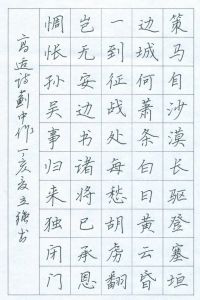 策马自沙漠长驱登塞垣
边城何萧条白日黄云昏
一到征战处每愁胡虏翻
岂无安边书诸将已承恩
惆怅孙吴事归来独闭门
高适诗蓟中作丁亥夏立强书